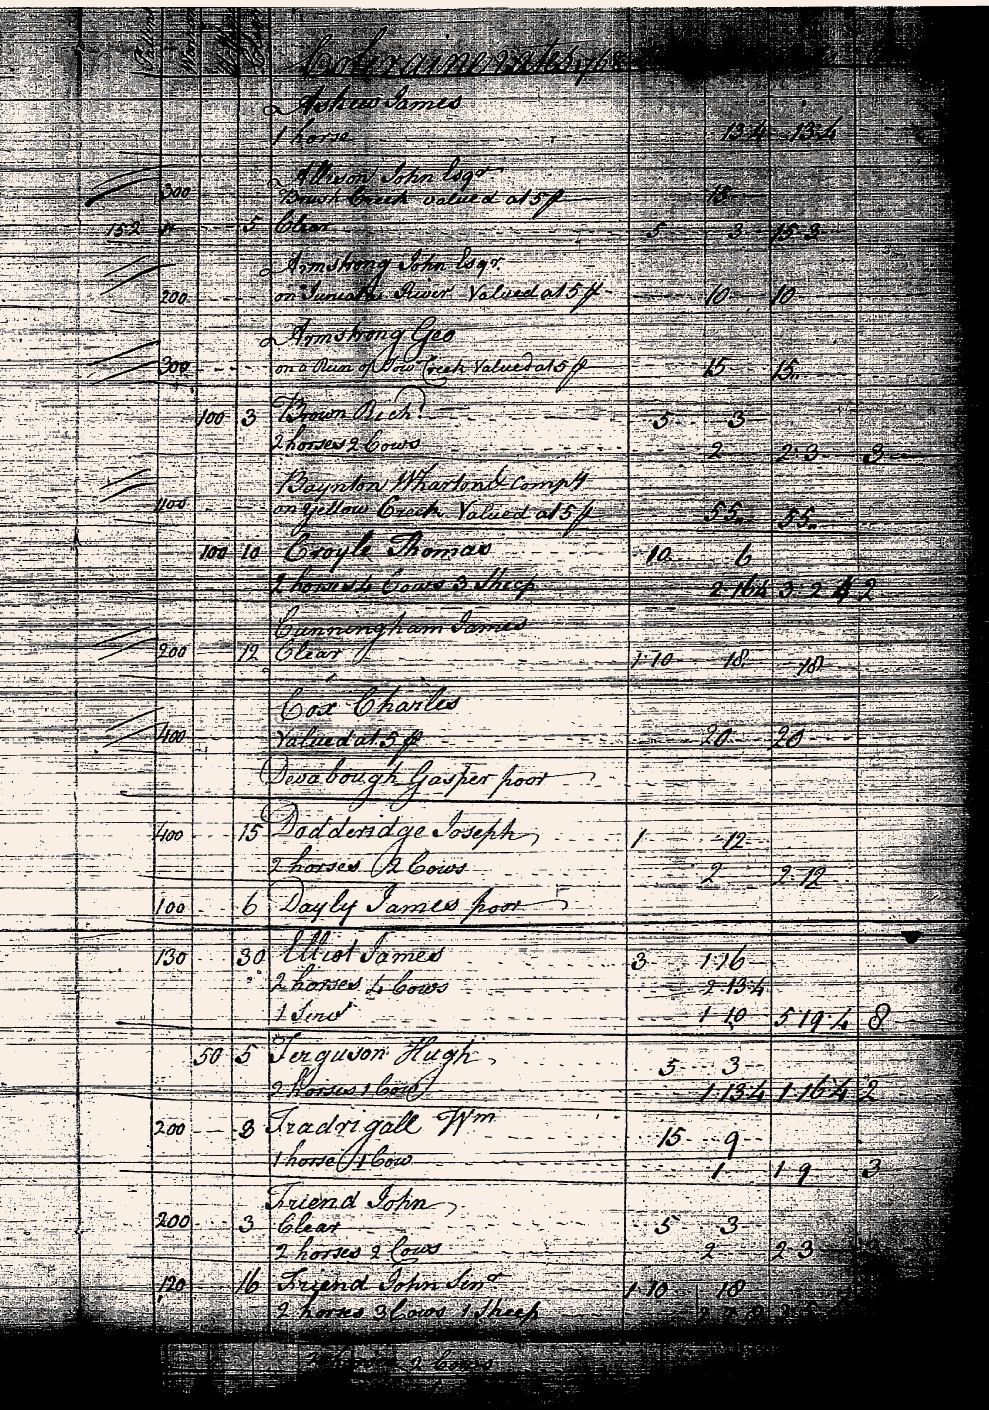 Coloraine Rates 1768
Askew James
1 horse 13 4 13 4
Allison John Esqr
300 Brush Creek valued at 5 ₶ 15
15 2 5 Clear 5 3 15 3
Armstrong John Esqr.
200 on Juniata River Valued at 5 ₶ 10 10
Armstrong Geo
300 on a Run of Creek Valued at 5 ₶ 15 15
100 3 Brown Rich 5 3
2 horses 2 Cows 2 2 3 3
Baynton Wharton & Compy
1100 on Yellow Creek Valued at 5 ₶ 55 55
100 10 Croyle Thomas 10 6
2 horses 4 Cows 3 Sheep 2 16 4 3 2 4 2
Cunningham James
200 12 Clear 1 10 18 18
Cox Charles
400 Valued at 5 ₶ 20 20
Devabough Gasper poor
400 15 Dodderidge Joseph 1 12
2 horses 2 Cows 2 2 12
100 6 Dayly James poor
130 30 Elliot James 3 1 16
2 horses 4 Cows 2 13 4
1 Servt 1 10 5 19 4 8
50 5 Ferguson Hugh 5 3
2 horses 1 Cow 1 13 4 1 16 4 2
200 8 Fradrigall Wm 15 9
1 horse 1 Cow 1 1 9 3
Friend John
200 3 Clear 5 3
2 horses 2 Cows 2 2 3
120 16 Friend John Senr 1 10 18
2 horses 3 Cows 1 Sheep
2 Cows